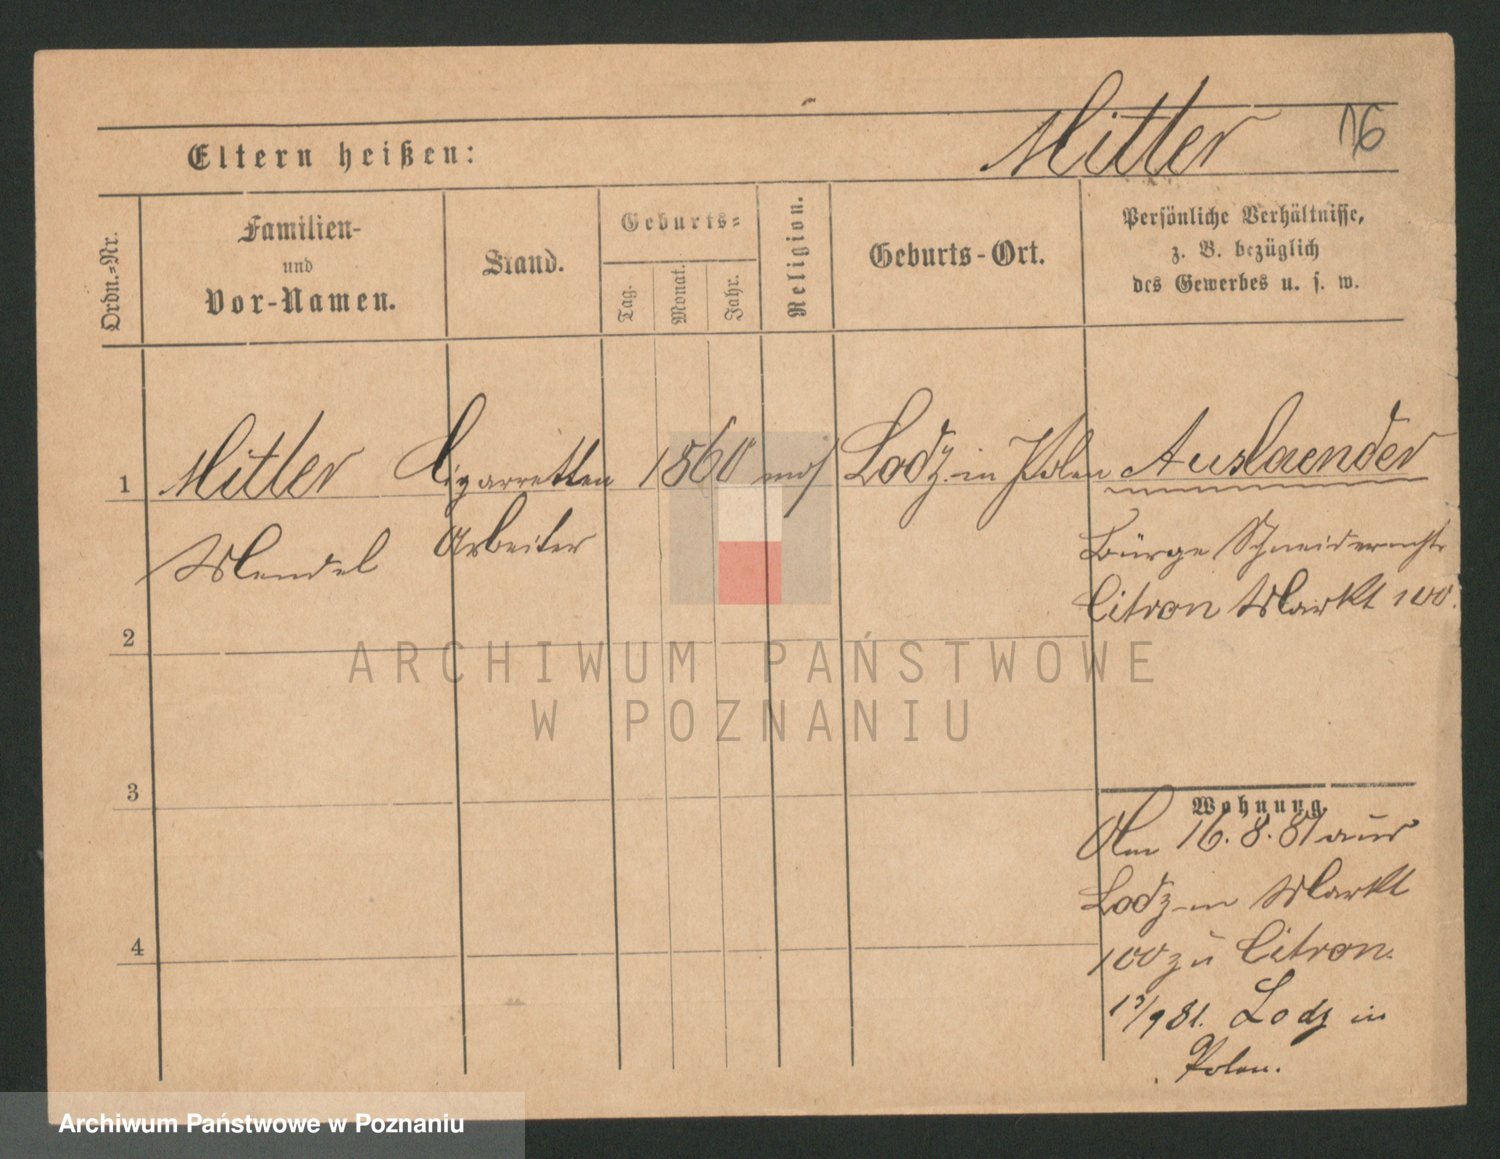 Mittler 76
Eltern heißen:
Ordn.-Nr.
Familien-
und
Vor-Namen.
Stand.
Geburts-
Tag.
Monat.
Jahr.
Religion.
Geburts-Ort.
Persönliche Verhältnisse,
z. B. bezüglich
des Gewerbes u. s. w.
1 Mittler Cigarretten 1860 mos Lodz in Polen Auslaender
Mendel Arbeiter
Bürge
Citron Markt 100.
2
ARCHIWUM PAŃSTWOWE
W POZNANIU
3
Wohnung.
Am 16.8.81 aus
Lodz in Markt
100 zu Citron.
/9 81. Lodz in
Polen.
4
Archiwum Państwowe w Poznaniu